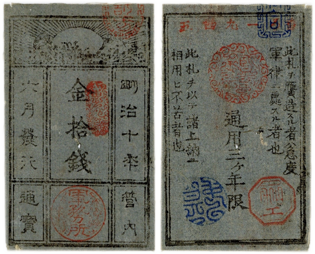 明治十年
管内
金拾錢
軍務所
六月發行
通寳
此札ヲ贋造スル者急度
軍律ニ處スル者也
通用三ヶ年限
此札ヲ以テ諸上納ニモ
相用ヒ不苦者也